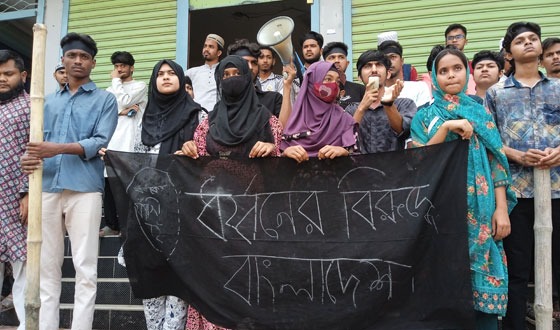 ধর্ষণের বিরুদ্ধে
বাংলাদেশ।